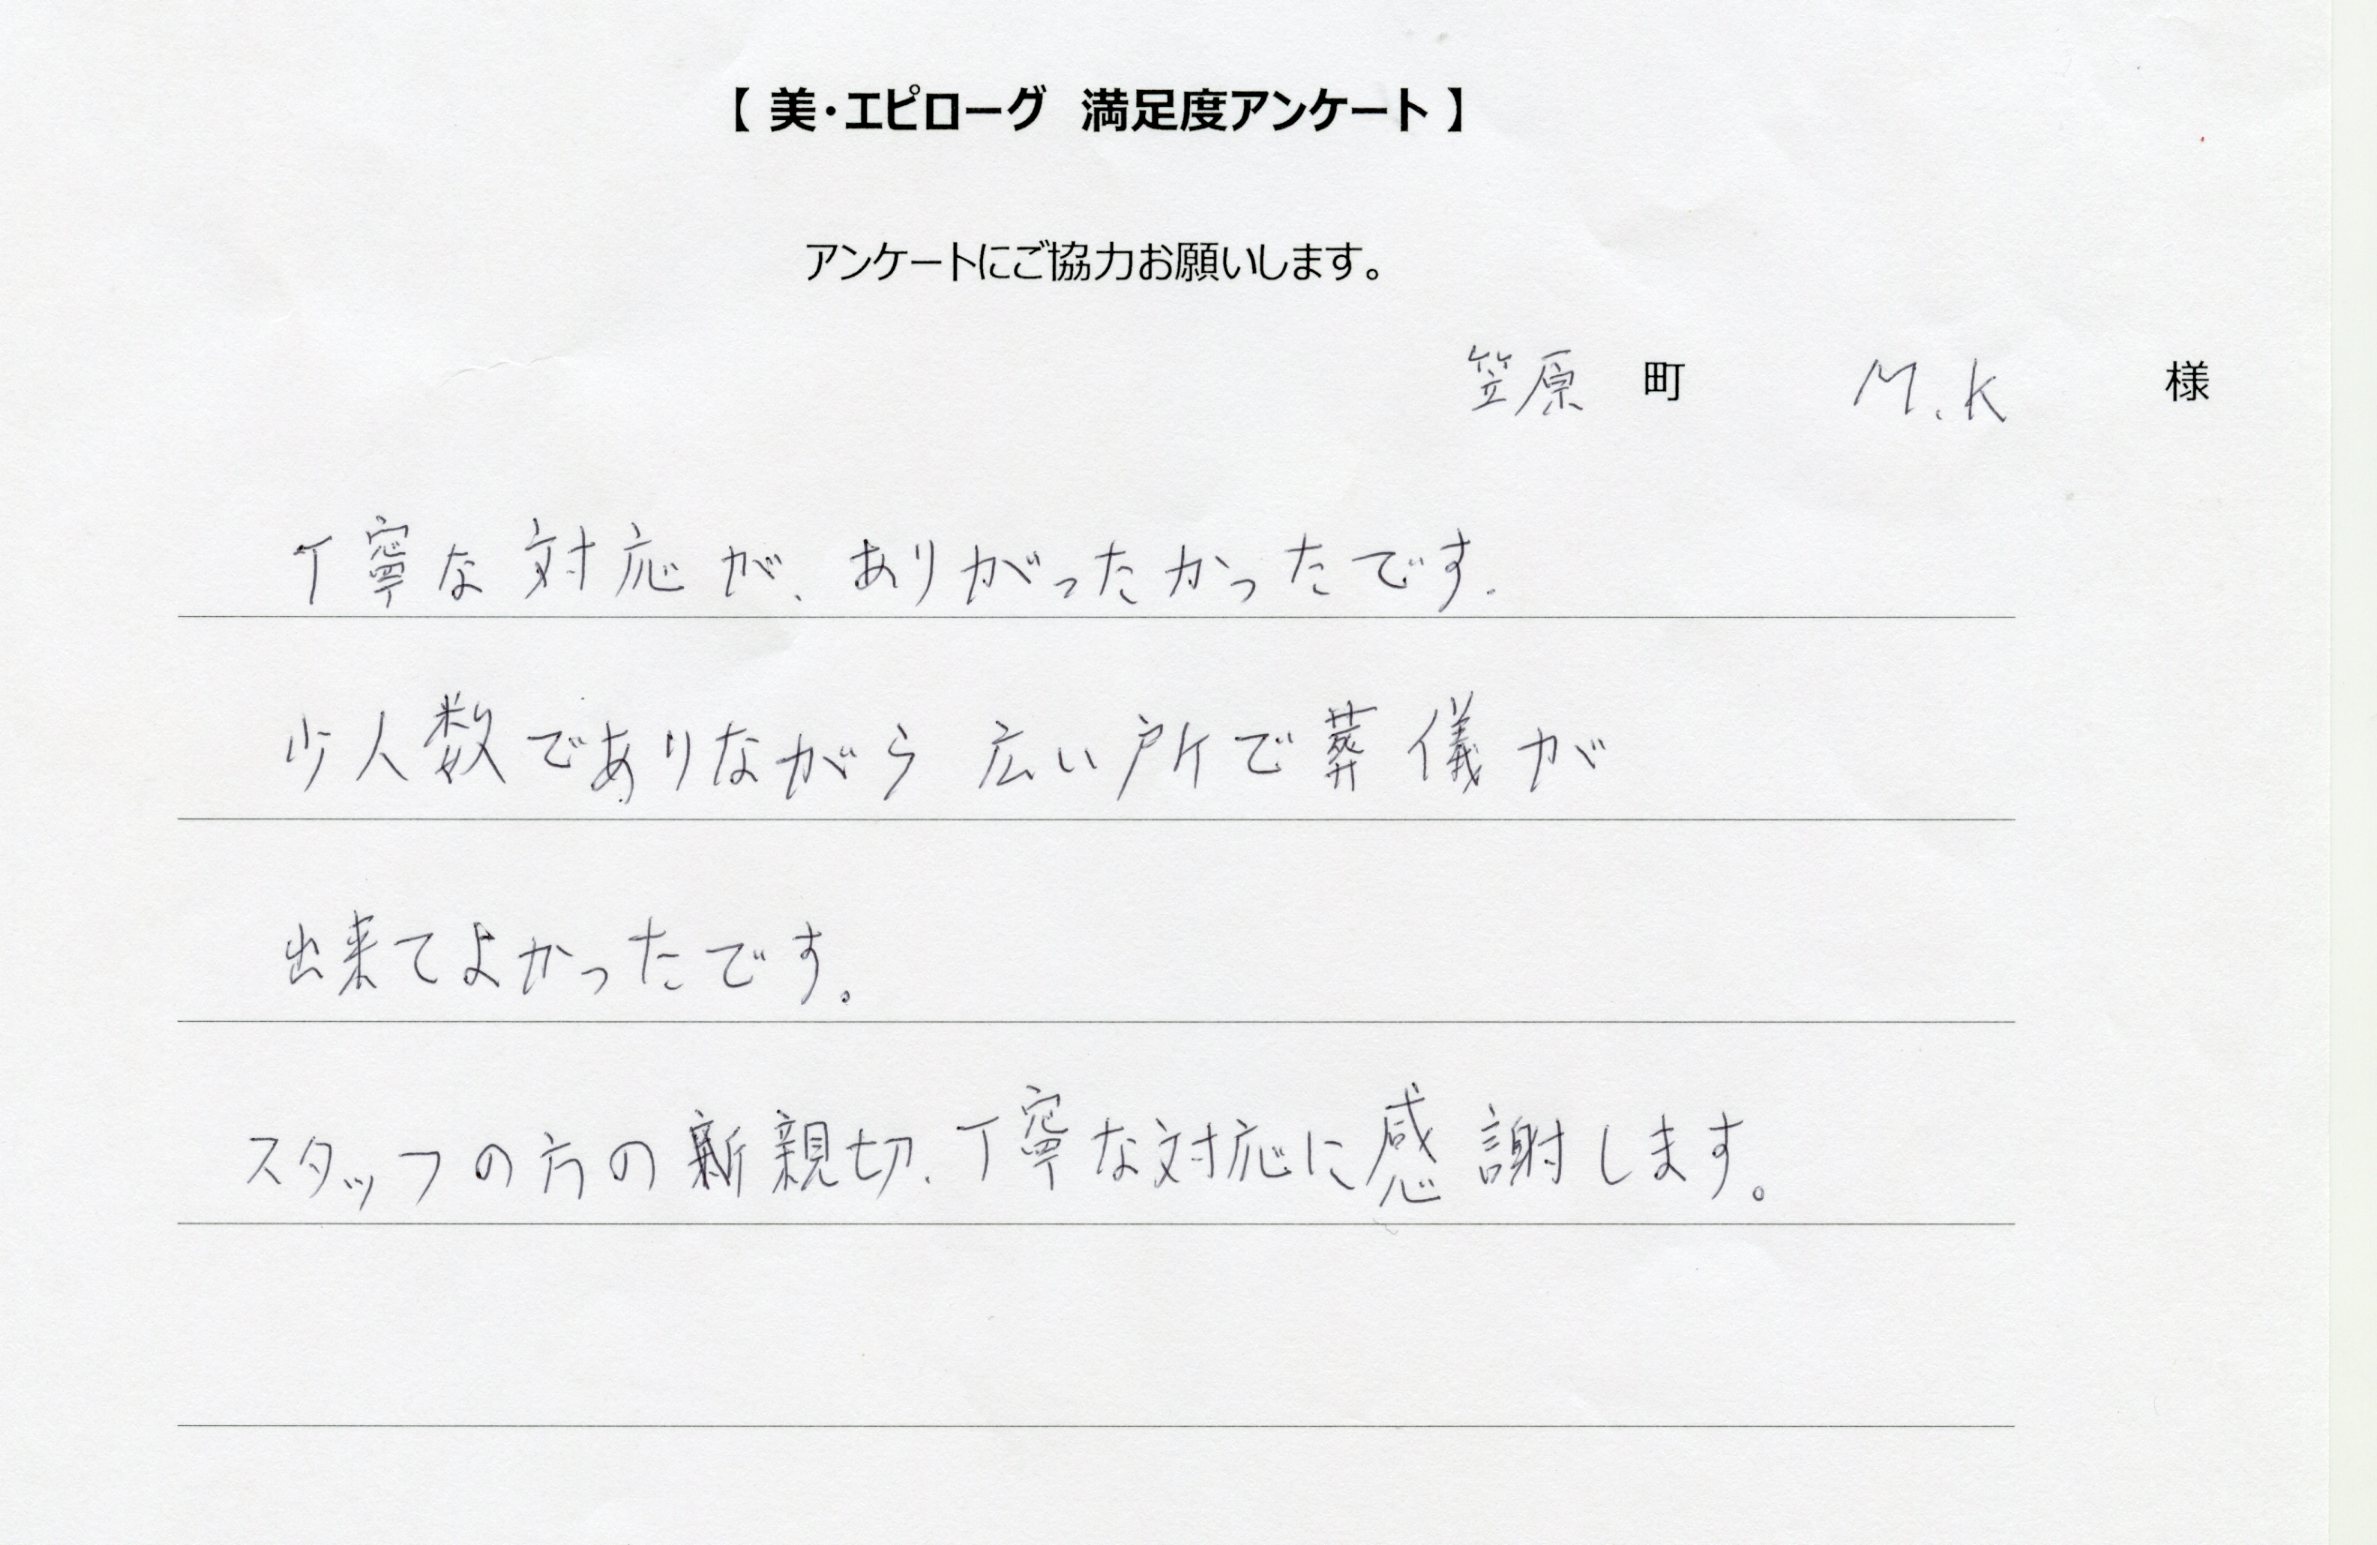 【 美・エピローグ 満足度アンケート 】
アンケートにご協力お願いします。
笠原 町 M.K 様
丁寧な対応が、ありがったかったです.
少人数でありながら 広い所で葬儀が
出来てよかったです。
スタッフの方の新親切、丁寧な対応に感謝します。